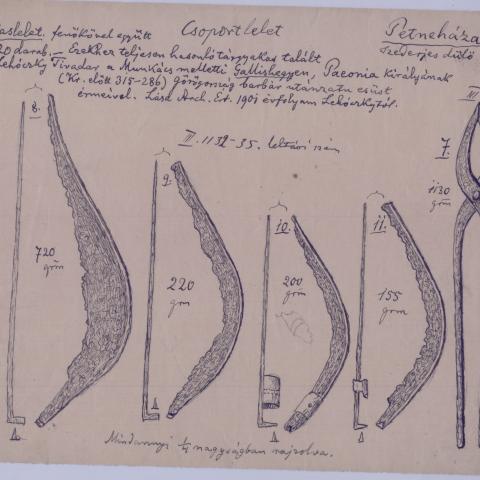 Csoportlelet
Petneháza
aslelet. fenőkővel együtt
Szederjes dülő
20 darab. — Ezekhez teljesen hasonló tárgyakat talált
Lehóczky Tivadar a Munkács melletti Gallishegyen, Paeonia királyának
(Kr. előtt 315-286) görögország barbár utánzatu ezüst
érmeivel. Lásd Arch. Ért. 1901 évfolyam Lehóczkytól.
III. 1132-35. leltári szám
8.
9.
10.
11.
7.
720
grm
220
grm
200
grm
155
grm
1130
grm
Mindannyi 1/4 nagyságban rajzolva.